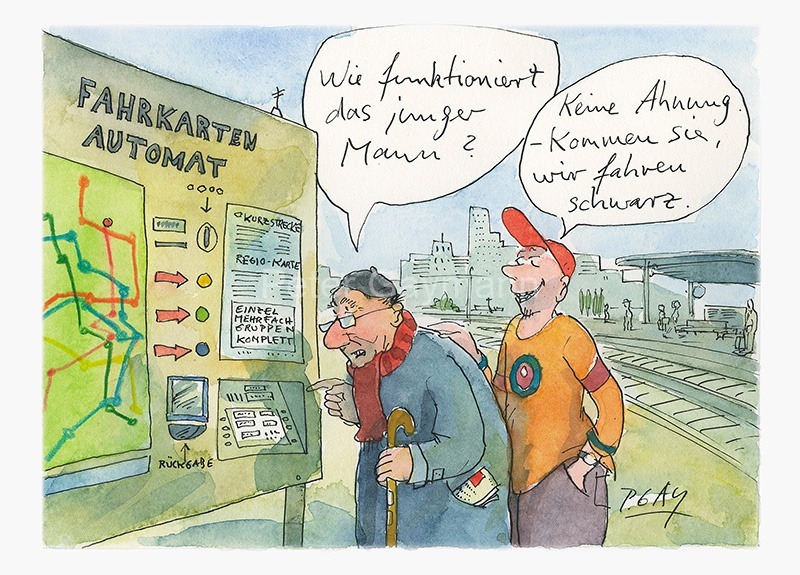 FAHRKARTEN
AUTOMAT
KURZSTRECKE
REGIO-KARTE
EINZEL
MEHRFACH
GRUPPEN
KOMPLETT
RÜCKGABE
Wie funktioniert
das junger
Mann?
Keine Ahnung.
-Kommen Sie,
wir fahren
schwarz.
Peter Gaymann
P. GAY